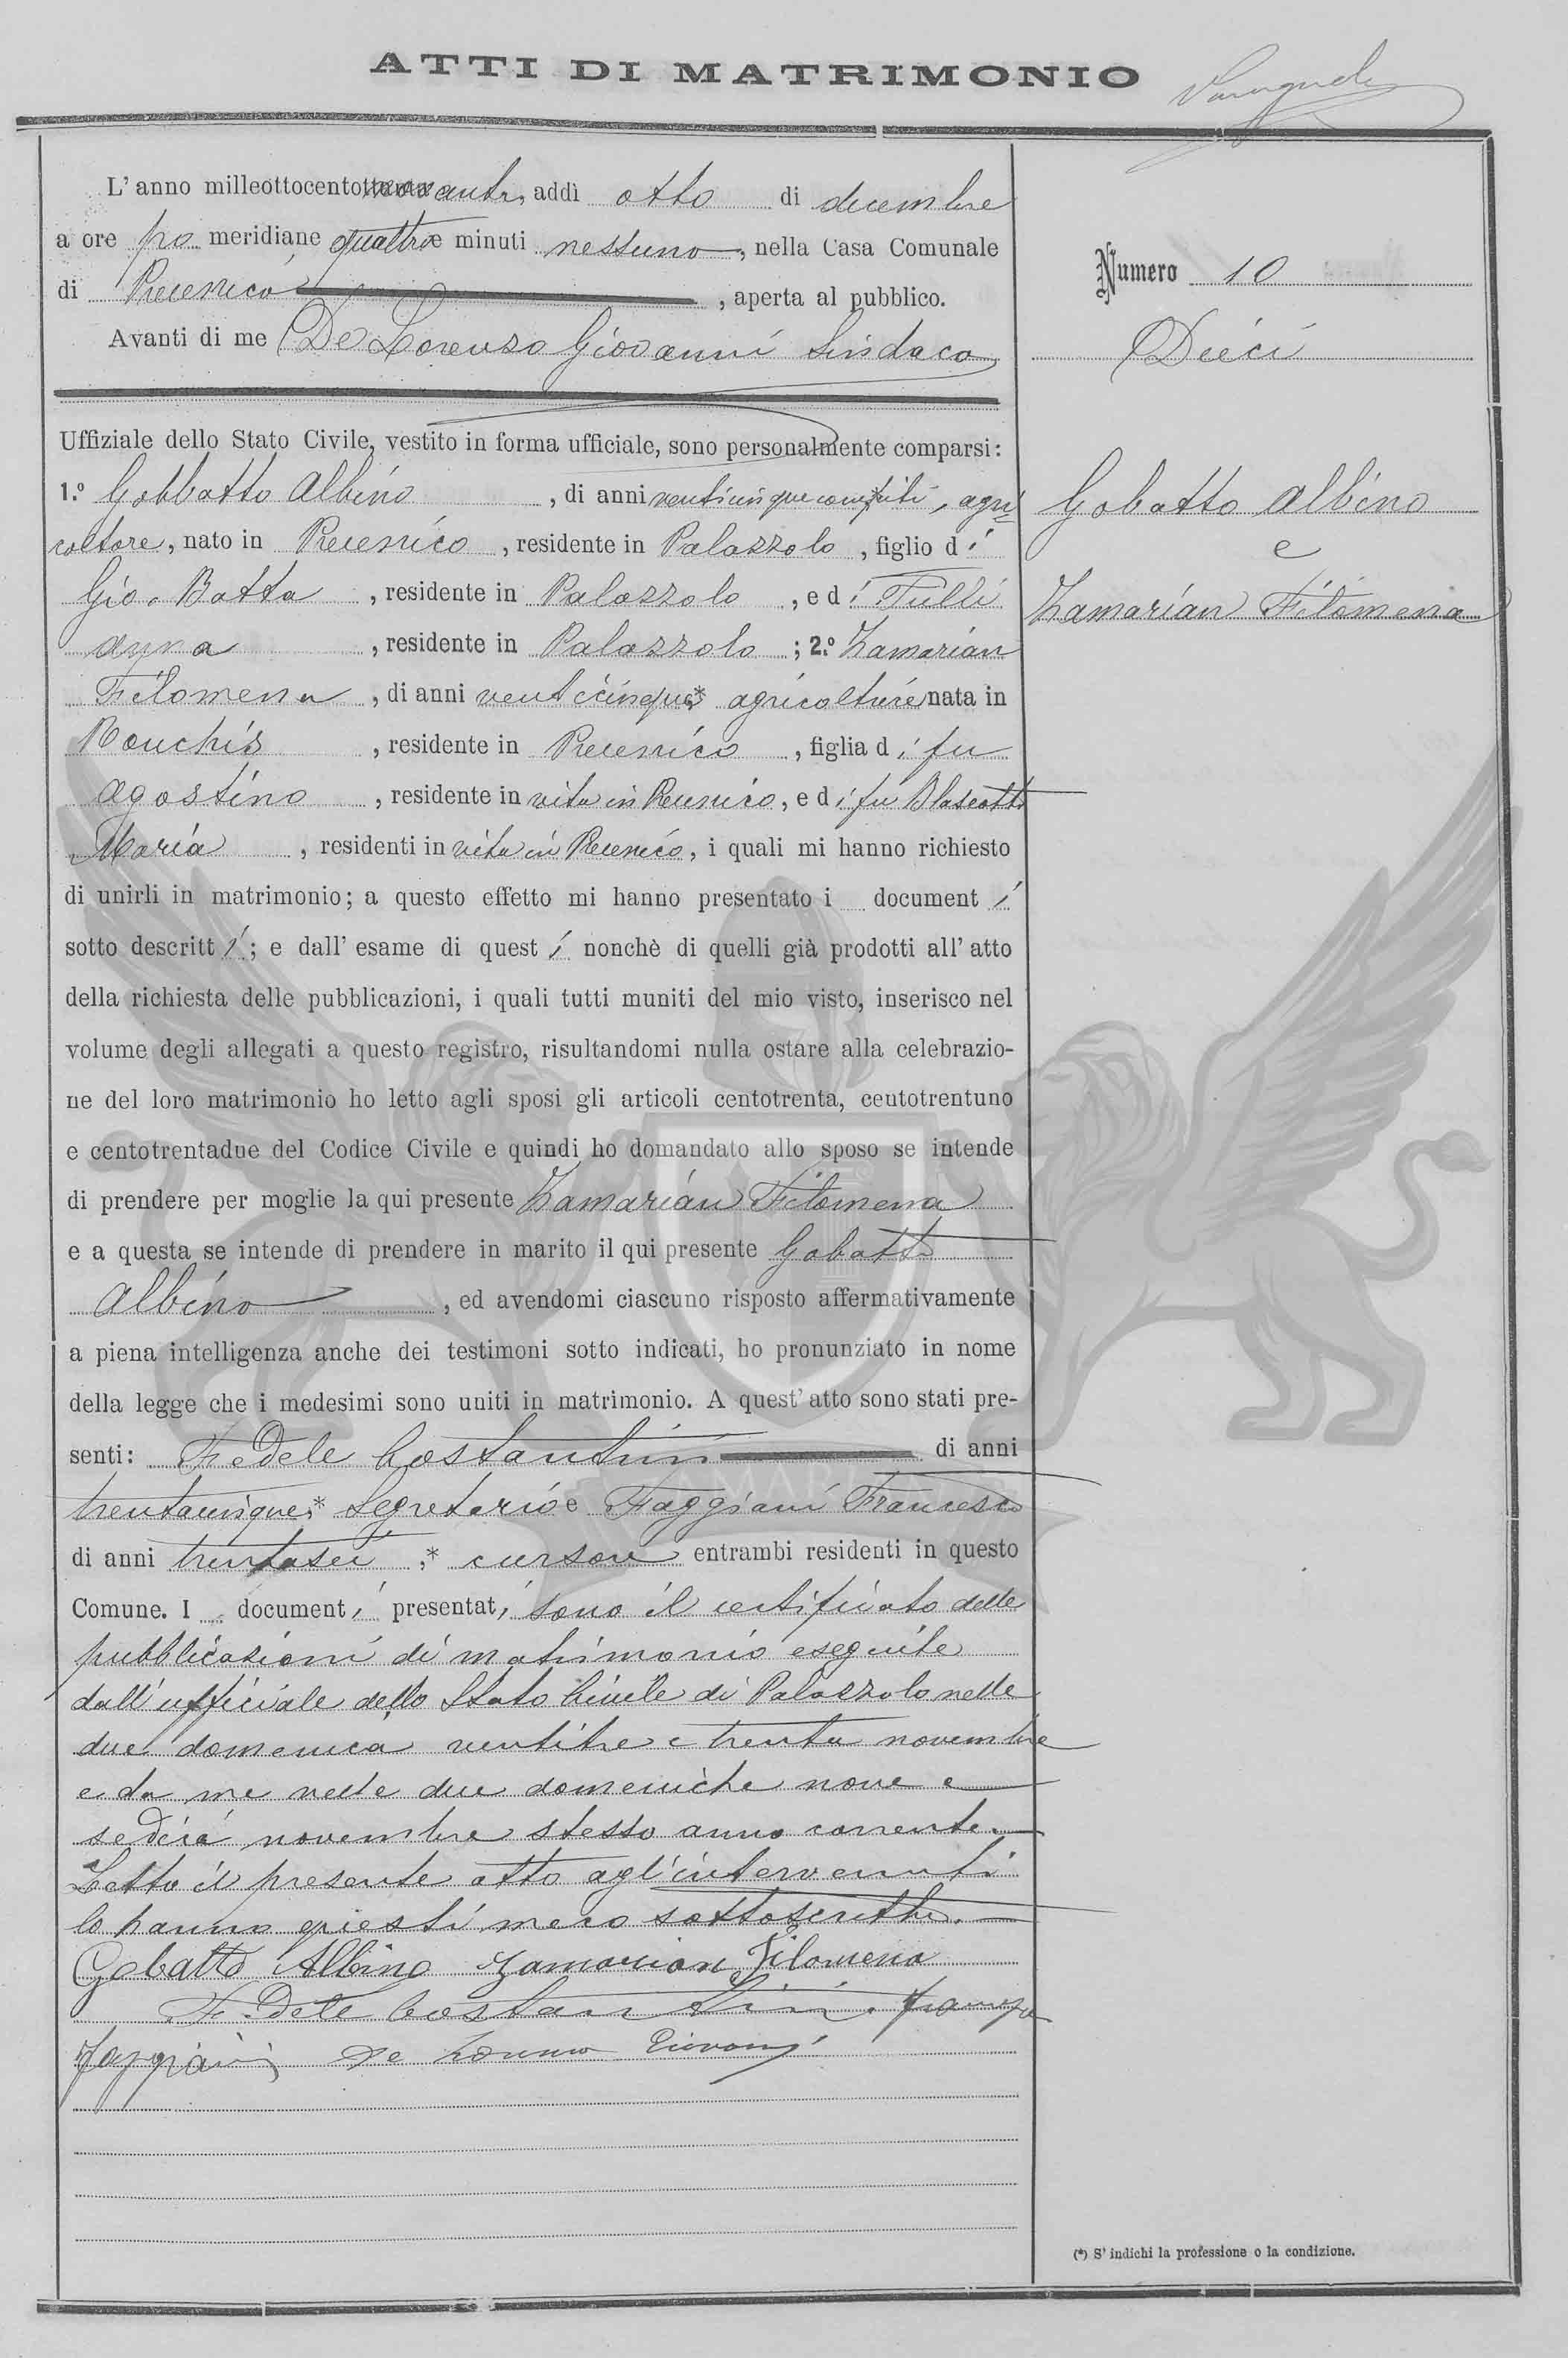 ATTI DI MATRIMONIO
L'anno milleottocento novanta, addì otto di decembre
a ore po meridiane quattro e minuti nessuno, nella Casa Comunale
di Precenico, aperta al pubblico.
Avanti di me De Lorenzo Giovanni Sindaco
Uffiziale dello Stato Civile, vestito in forma ufficiale, sono personalmente comparsi:
1.º Gobbatto Albino, di anni venticinque compiuti, agri
coltore, nato in Precenico, residente in Palazzolo, figlio di
Gio. Batta, residente in Palazzolo, e di Tulli
Anna, residente in Palazzolo; 2.º Zamarian
Filomena, di anni venticinque,* agricoltrice nata in
Ronchis, residente in Precenico, figlia di fu
Agostino, residente in vita in Precenico, e di fu
Maria, residenti in vita in Precenico, i quali mi hanno richiesto
di unirli in matrimonio; a questo effetto mi hanno presentato i documenti
sotto descritti; e dall'esame di questi nonchè di quelli già prodotti all'atto
della richiesta delle pubblicazioni, i quali tutti muniti del mio visto, inserisco nel
volume degli allegati a questo registro, risultandomi nulla ostare alla celebrazio-
ne del loro matrimonio ho letto agli sposi gli articoli centotrenta, centotrentuno
e centotrentadue del Codice Civile e quindi ho domandato allo sposo se intende
di prendere per moglie la qui presente Zamarian Filomena
e a questa se intende di prendere in marito il qui presente Gobatto
Albino, ed avendomi ciascuno risposto affermativamente
a piena intelligenza anche dei testimoni sotto indicati, ho pronunziato in nome
della legge che i medesimi sono uniti in matrimonio. A quest'atto sono stati pre-
senti: Fedele Costantini di anni
trentacinque,* Segretario e Faggiani Francesco
di anni trentasei,* cursore entrambi residenti in questo
Comune. I documenti presentati sono il certificato delle
pubblicazioni di matrimonio eseguite
dall'ufficiale dello Stato Civile di Palazzolo nelle
due domenica ventitre e trenta novembre
e da me nelle due domeniche nove e
sedici novembre stesso anno corrente.
Letto il presente atto agl'intervenuti
lo hanno questi meco sottoscritto.
Gobatto Albino Zamarian Filomena
Fedele Costantini.
Faggiani De Lorenzo Giovanni
Numero 10
Dieci
Gobatto Albino
e
Zamarian Filomena
(*) S'indichi la professione o la condizione.